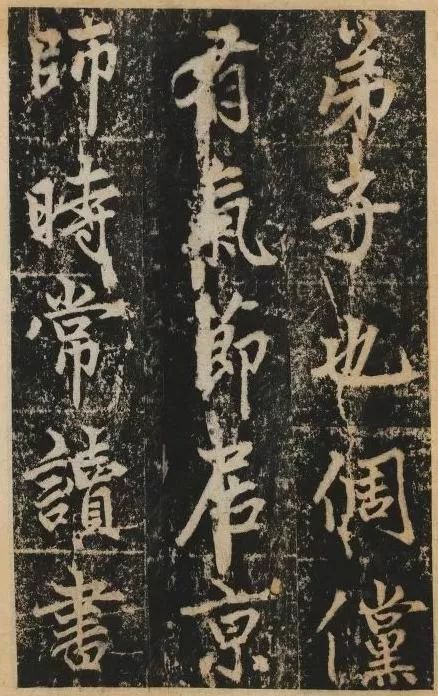 弟子也倜儻
有氣節居京
師時常讀書